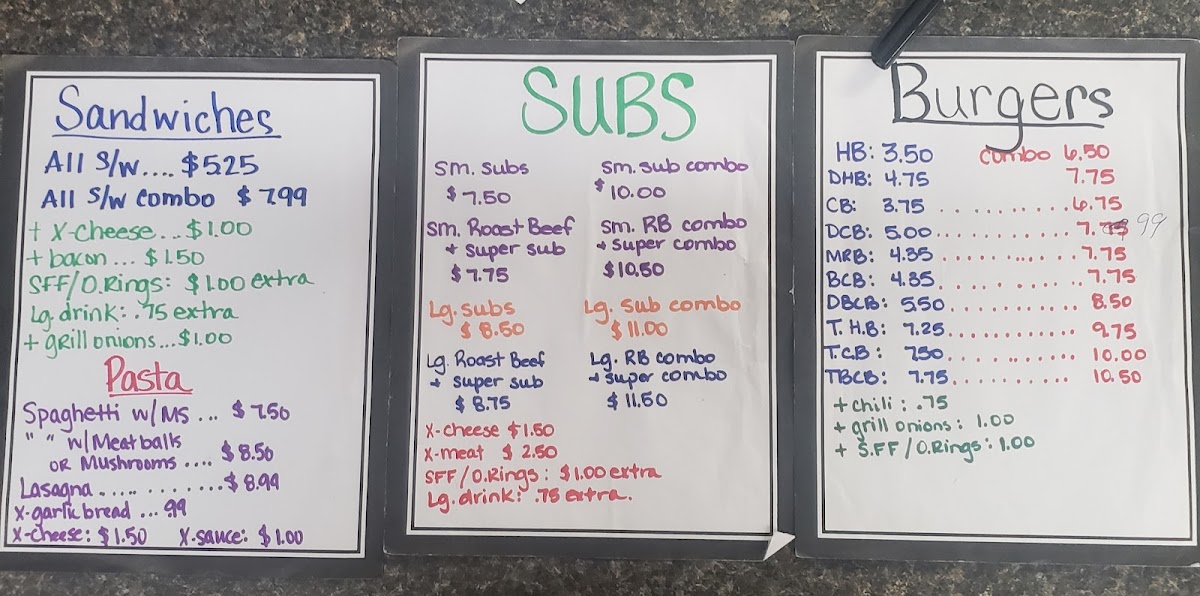 Sandwiches
All S/W.... $525
All S/W combo $7.99
+ X-cheese... $1.00
+ bacon... $1.50
SFF/O.Rings: $1.00 extra
Lg. drink: .75 extra
+ grill onions... $1.00
Pasta
Spaghetti w/MS ... $7.50
" " w/ Meatballs
OR Mushrooms .... $8.50
Lasagna.............. $8.99
X-garlic bread ... .99
X-cheese: $1.50 X-sauce: $1.00
SUBS
Sm. Subs
$7.50
Sm. Sub combo
$10.00
Sm. Roast Beef
+ super sub
$7.75
Sm. RB combo
+ super combo
$10.50
Lg. Subs
$8.50
Lg. Sub combo
$11.00
Lg. Roast Beef
+ super sub
$8.75
Lg. RB combo
+ super combo
$11.50
X-cheese $1.50
X-meat $2.50
SFF/O.Rings: $1.00 extra
Lg. drink: .75 extra.
Burgers
HB: 3.50 combo 6.50
DHB: 4.75 7.75
CB: 3.75 ........... 6.75
DCB: 5.00 ............ 7. 99
MRB: 4.35 ........... 7.75
BCB: 4.85 ............ 7.75
DBCB: 5.50 ........... 8.50
T.H.B: 7.25 ............ 9.75
T.C.B: 7.50 ............ 10.00
TBCB: 7.75 ............ 10.50
+ chili: .75
+ grill onions: 1.00
+ S.FF/O.Rings: 1.00